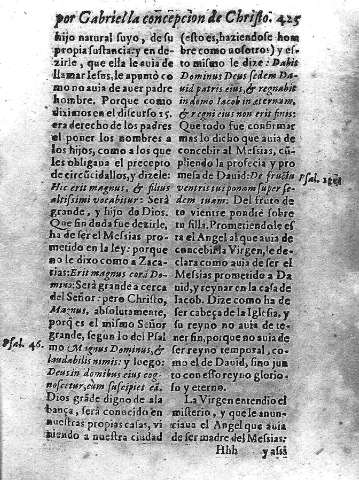 por Gabriel la concepcion de Christo. 425
hijo natural suyo, de su
propia sustancia: y en de-
zirle, que ella le auia de
llamar Iesus, le apuntò co
mo no auia de auer padre
hombre. Porque como
diximos en el discurso 15.
era derecho de los padres
el poner los nombres a
los hijos, como a los que
les obligaua el precepto
de circũcidallos, y dizele:
Hic erit magnus, & filius
altissimi vocabitur: Serà
grande, y hijo de Dios.
Que sin duda fue dezirle,
ha de ser el Messias pro-
metido en la ley: porque
no le dixo como a Zaca-
rias: Erit magnus corã Do-
mino: Serà grande a cerca
del Señor: pero Christo,
Magnus, absolutamente,
porq̃ es el mismo Señor
grande, segun lo del Psal
Psal. 46.
mo Magnus Dominus, &
laudabilis nimis: y luego:
Deus in domibus eius cog-
noscetur, cum suscipiet eã.
Dios grãde digno de ala
bança, serà conocido en
nuestras propias casas, vi
niendo a nuestra ciudad
(esto es, haziendose hom
bre como nosotros) y es-
to mismo le dize: Dabit
Dominus Deus sedem Da-
uid patris eius, & regnabit
in domo Iacob in æternum,
& regni eius non erit finis:
Que todo fue confirmar
mas lo dicho que auia de
concebir al Messias, cũ-
pliendo la profecia y pro
mesa de Dauid: De fructu
Psal.
ventris tui ponam super se-
dem tuam: Del fruto de
tu vientre pondrè sobre
tu silla. Prometiendole es
ta el Angel al que auia de
concebir la Virgen, le de-
clara como auia de ser el
Messias prometido a Da
uid, y reynar en la casa de
Iacob. Dize como ha de
ser cabeça de la Iglesia, y
su reyno no auia de te-
ner fin, porque no auia de
ser reyno temporal, co-
mo el de Dauid, sino jun
to con esto reyno glorio-
so y eterno.
La Virgen entendio el
misterio, y que le anun-
ciaua el Angel que auia
de ser madre del Messias:
Hhh
y assi